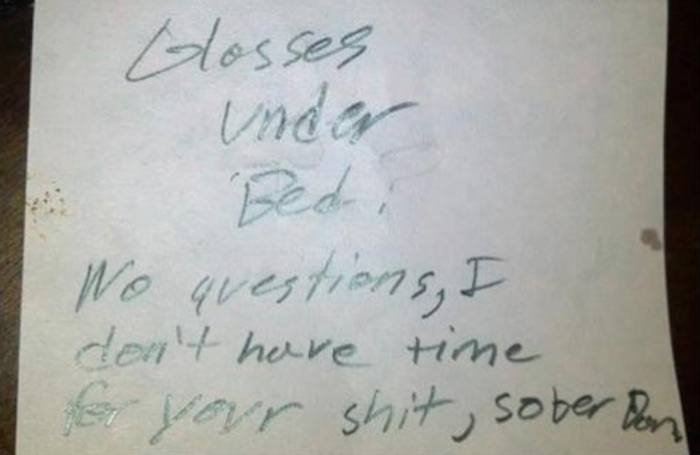 Glasses
under
Bed!
No questions, I
don't have time
for your shit, sober Dan